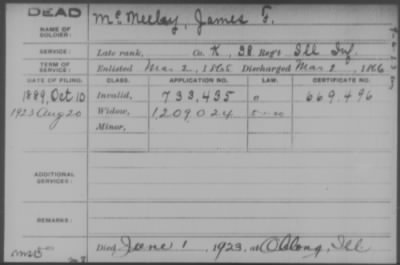 DEAD
NAME OF SOLDIER: McMeelay, James F.
SERVICE: Late rank, Co. K, 38 Reg't Ill Inf.
TERM OF SERVICE: Enlisted Mar 2, 1865 Discharged Mar 2, 1866
DATE OF FILING. CLASS. APPLICATION NO. LAW. CERTIFICATE NO.
1889, Oct 10 Invalid, 733,435 669.496
1923 Aug 20 Widow, 1209024
Minor,
ADDITIONAL SERVICES:
REMARKS:
Died June 1, 1923, at Oblong, Ill